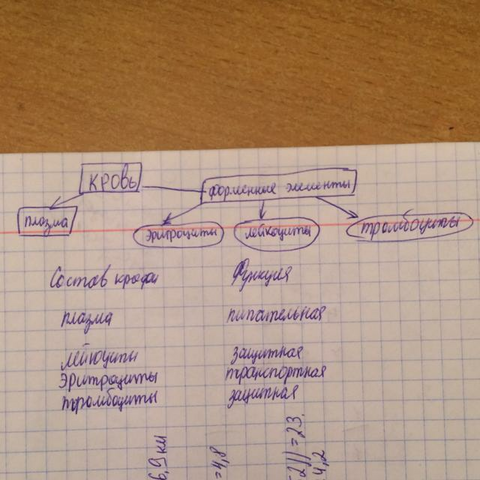 кровь
форменные элементы
плазма
эритроциты
лейкоциты
тромбоциты
Состав крови Функция
плазма питательная
лейкоциты защитная
эритроциты транспортная
тромбоциты защитная
6,9 км
=4,8
=23.
4,2